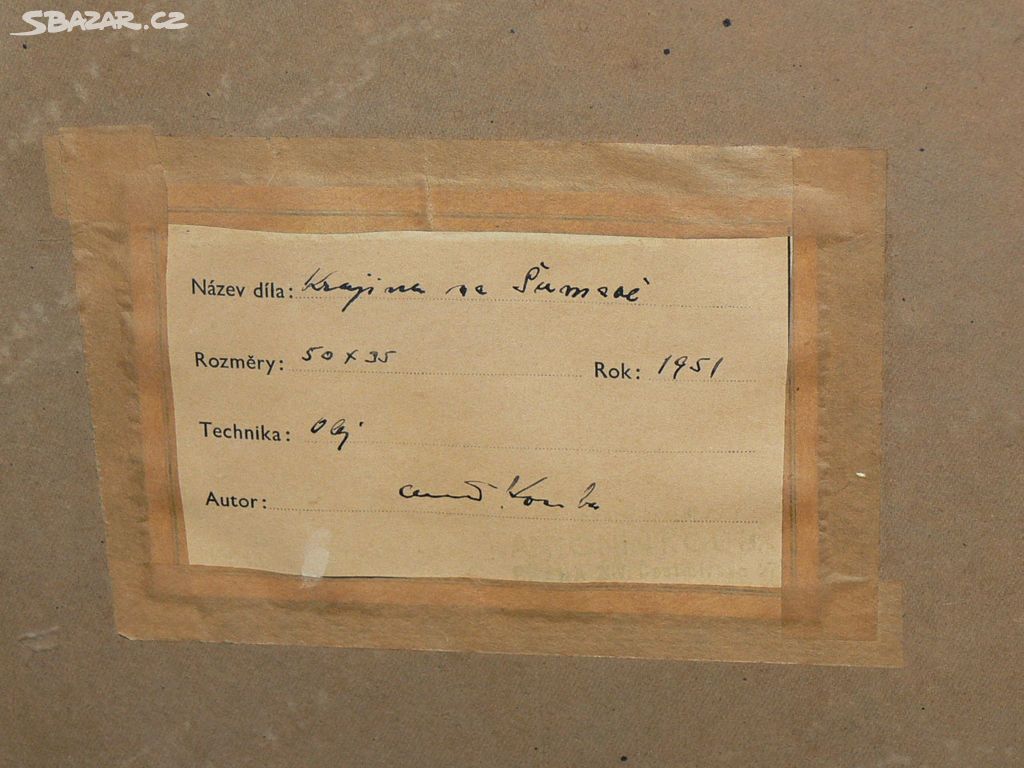 SBAZAR.CZ
Název díla: Krajina na Šumavě
Rozměry: 50 x 35 Rok: 1951
Technika: Olej
Autor: